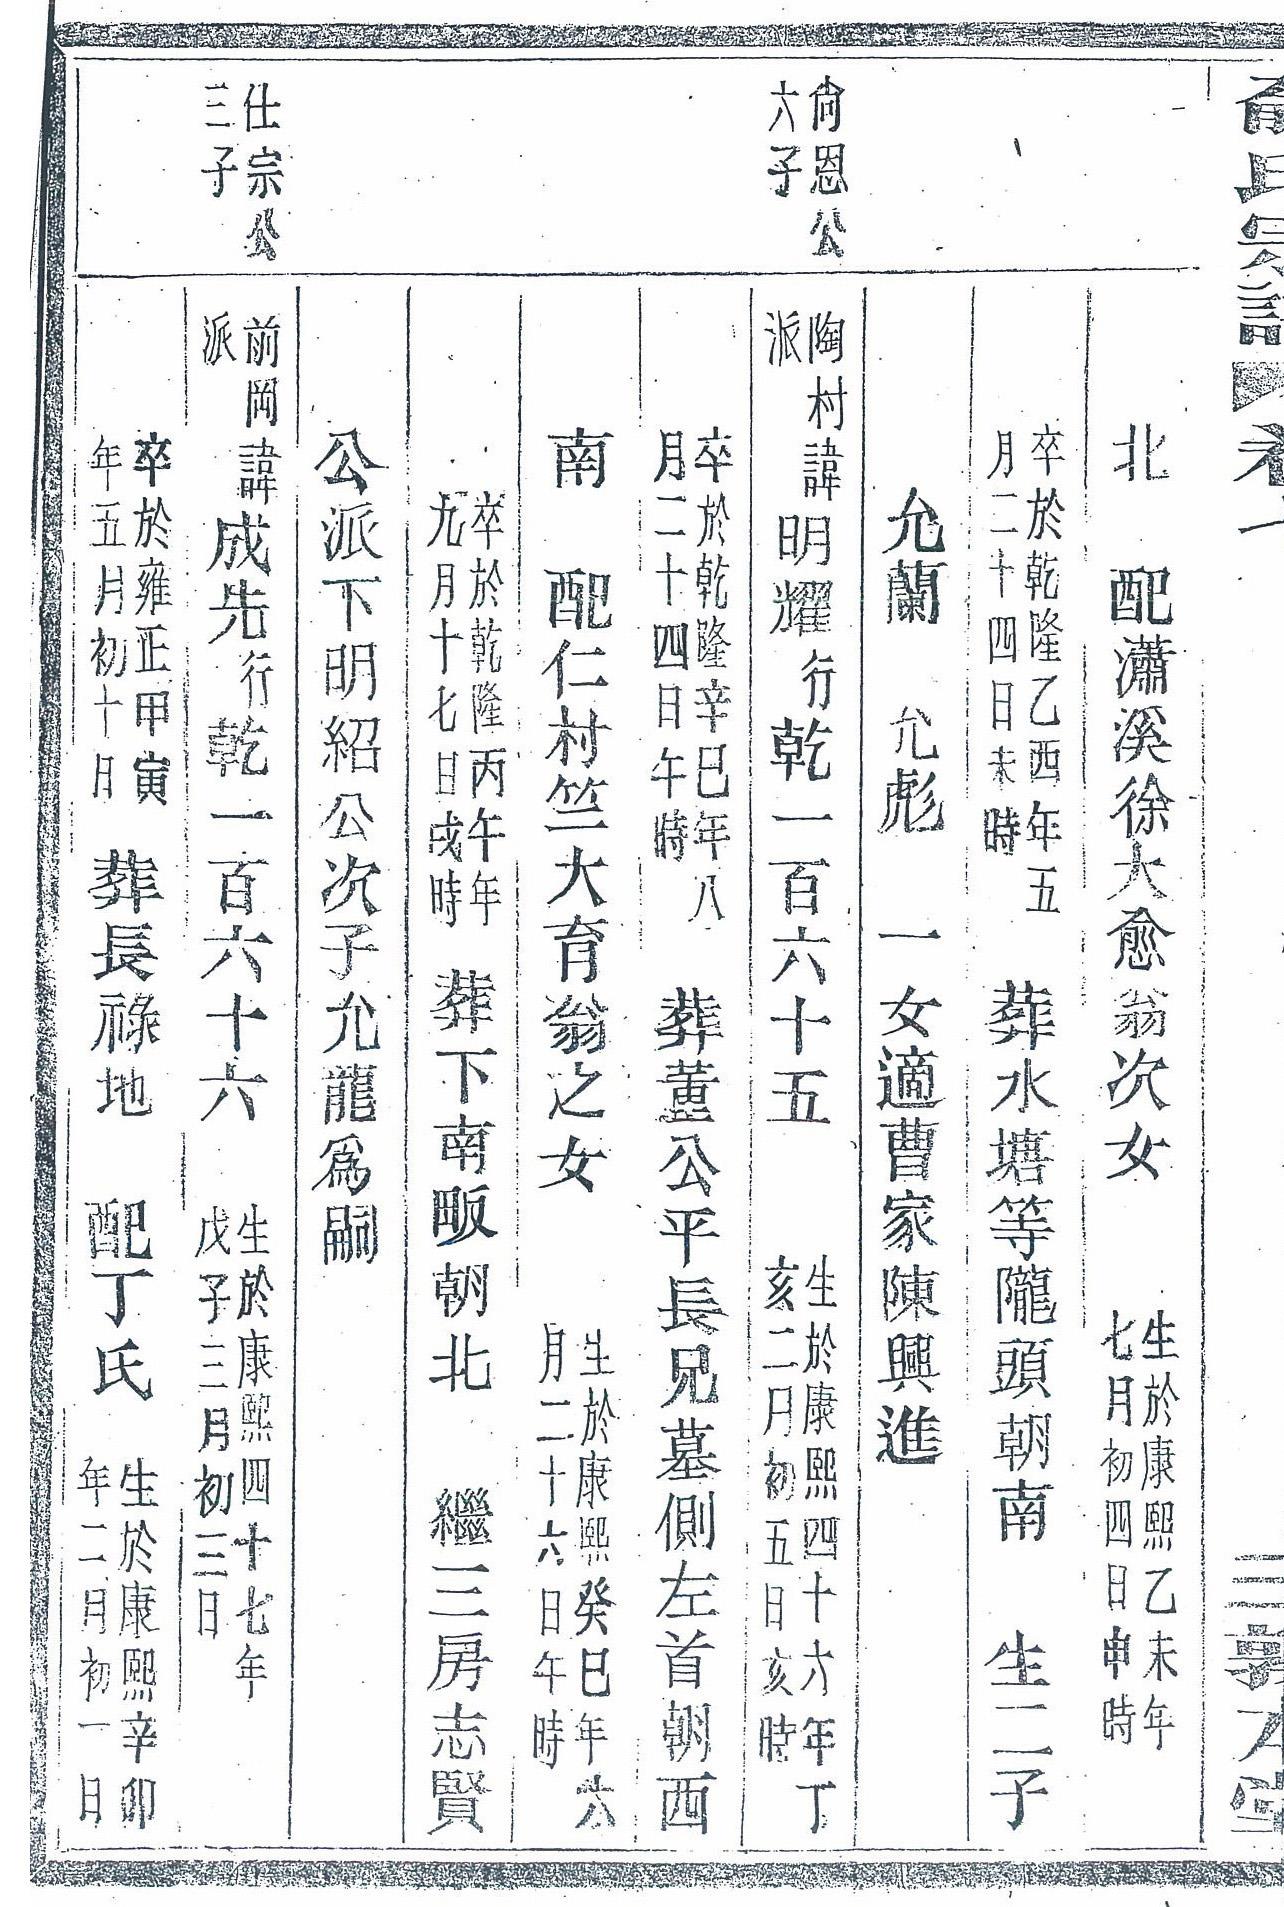 氏宗譜 卷一
北 配瀟溪徐大愈翁次女 生於康熙乙未年
七月初四日申時
卒於乾隆乙酉年五
月二十四日未時 葬水塘等隴頭朝南 生二子
允蘭 允彪 一女適曹家陳興進
尙恩公
六子
陶村
派 諱明耀行乾一百六十五 生於康熙四十六年丁
亥二月初五日亥時
卒於乾隆辛巳年八
月二十四日午時 葬董公平長兄墓側左首朝西
南 配仁村竺大育翁之女 生於康熙癸巳年六
月二十六日午時
卒於乾隆丙午年
九月十七日戌時 葬下南畈朝北 繼三房志賢
公派下明紹公次子允龍爲嗣
仕宗公
三子
前岡
派 諱成先行乾一百六十六 生於康熙四十七年
戊子三月初三日
卒於雍正甲寅
年五月初十日 葬長祿地 配丁氏 生於康熙辛卯
年二月初一日